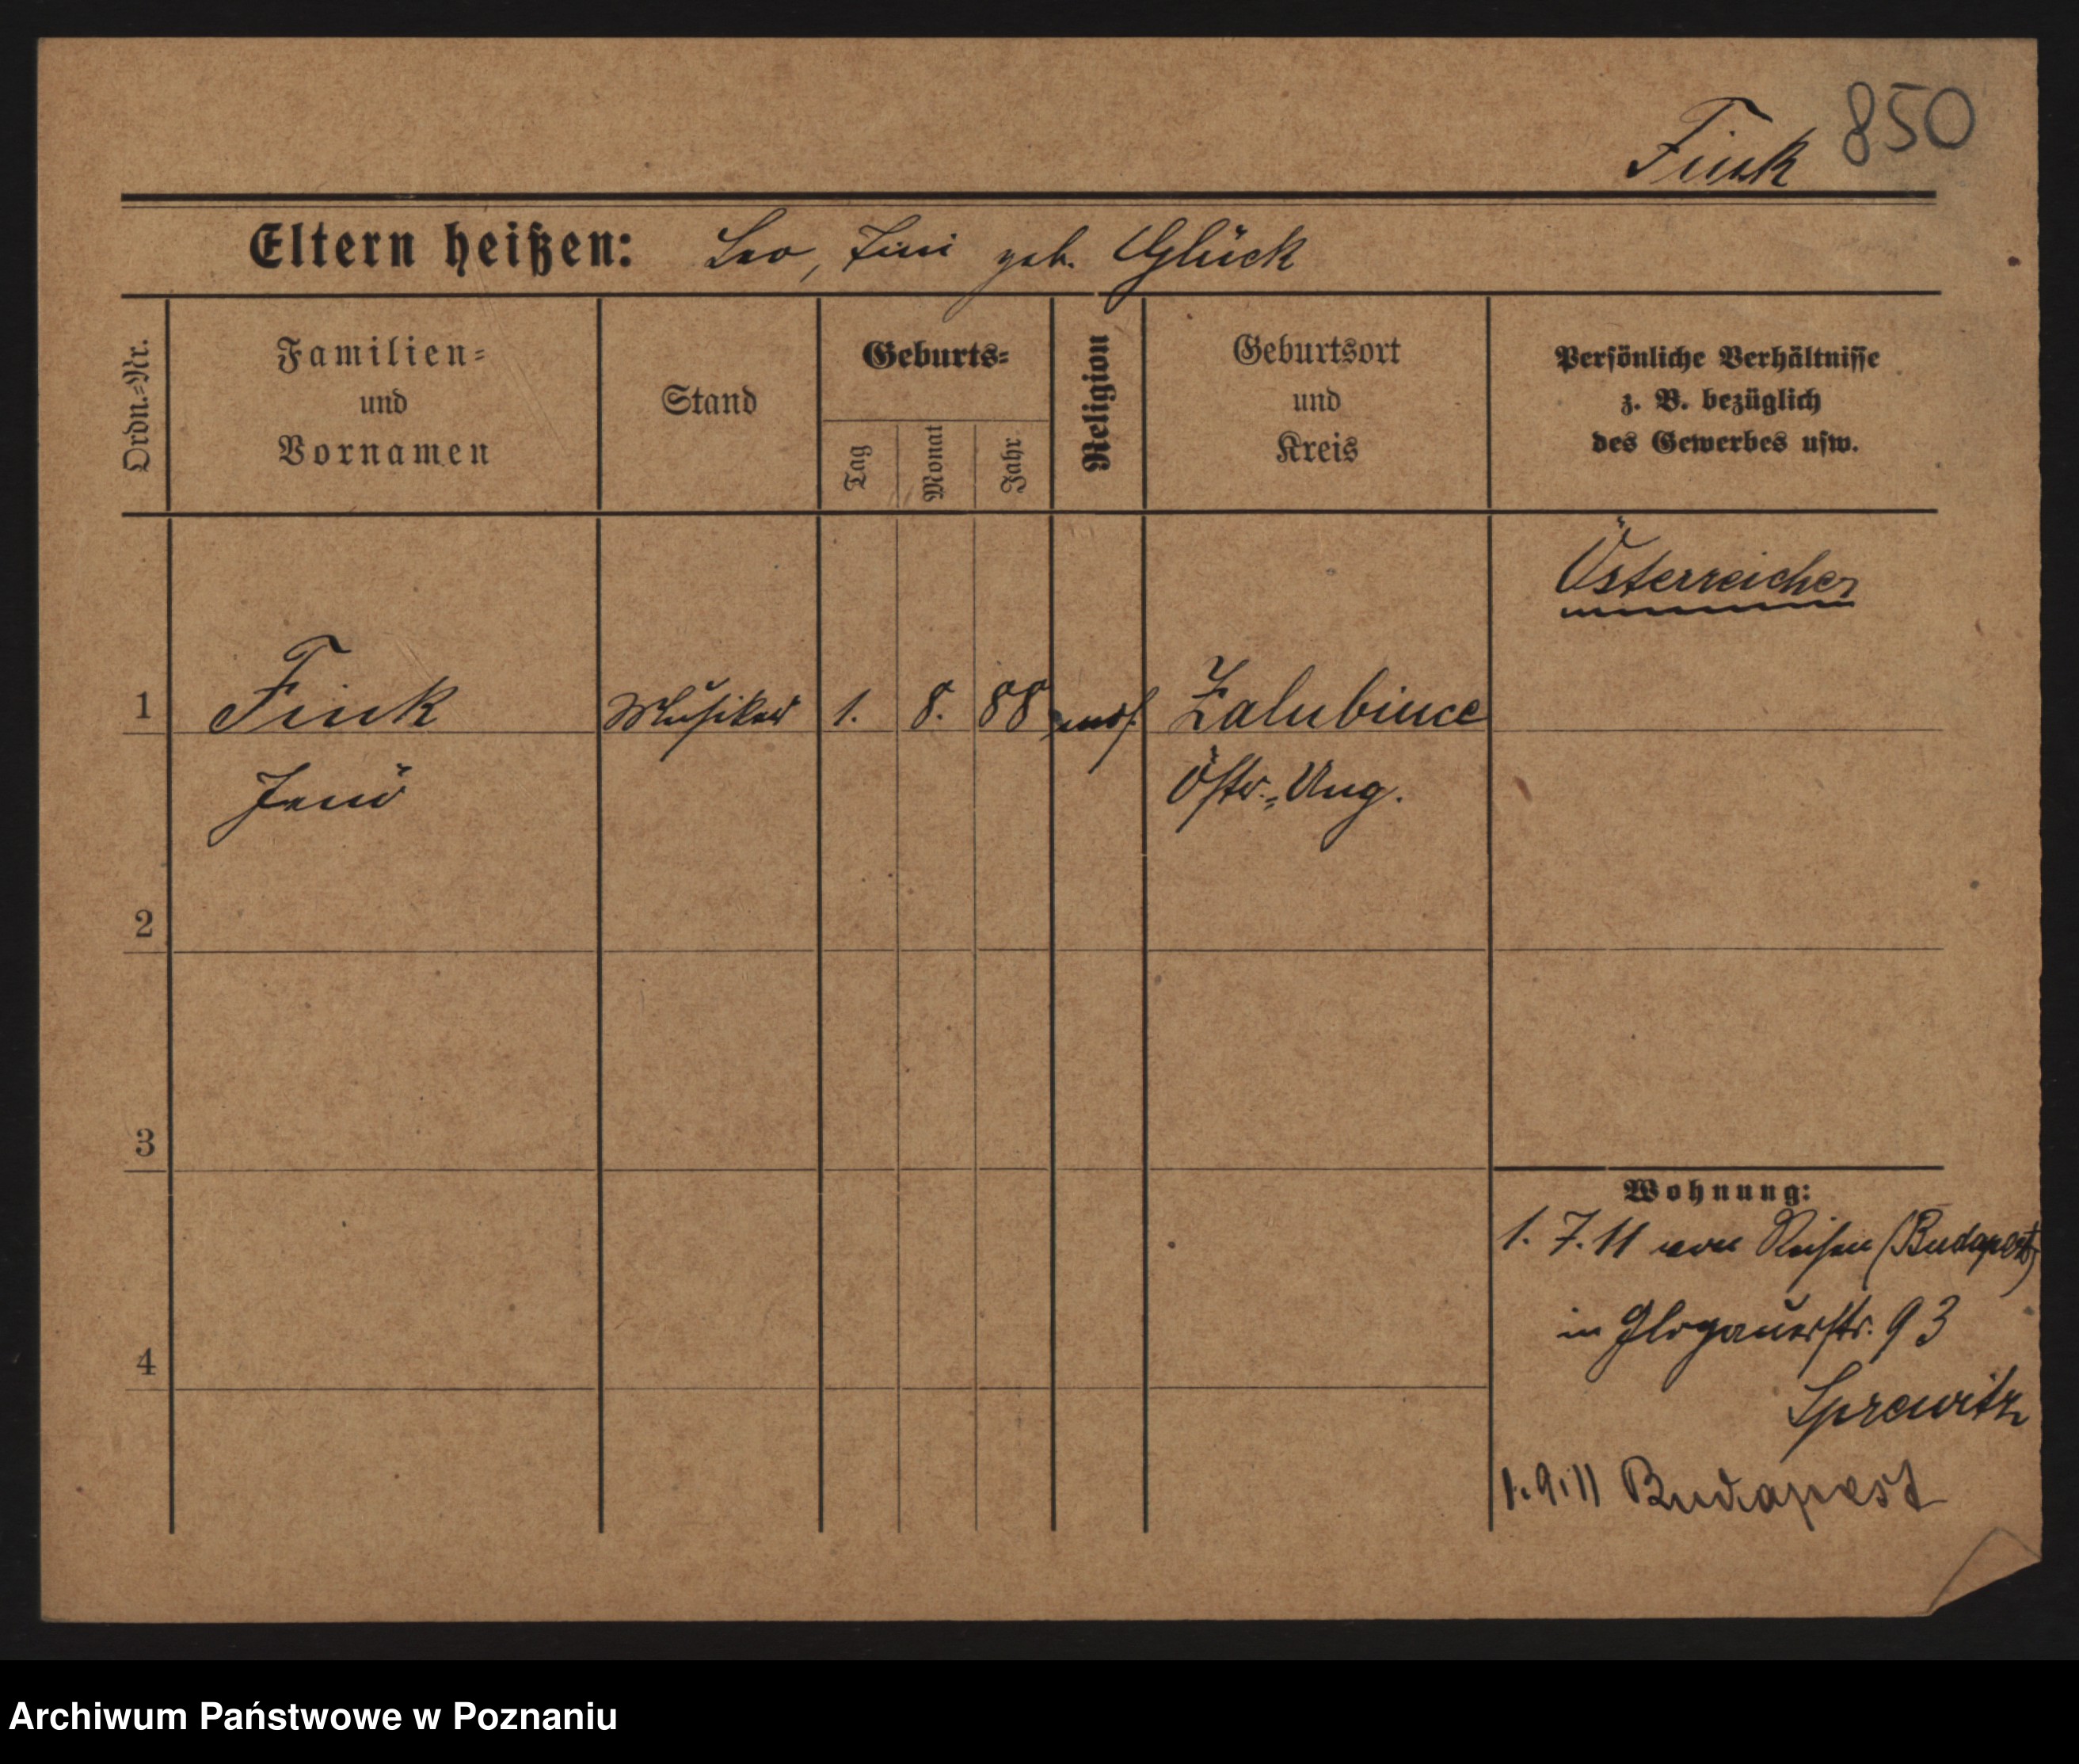 850
Fink
Eltern heißen: Leo, Fini geb. Glück
Ordn.=Nr.
Familien=
und
Vornamen
Stand
Geburts=
Tag
Monat
Jahr
Religion
Geburtsort
und
Kreis
Persönliche Verhältnisse
z. B. bezüglich
des Gewerbes usw.
Österreicher
1 Fink Musiker 1. 8. 88 mos. Zalubince
Jenö Östr.=Ung.
2
3
4
Wohnung:
1. 7. 11 von Reisen (Budapest)
in Glogauerstr. 93
Sprewitz
1.9.11 Budapest
Archiwum Państwowe w Poznaniu